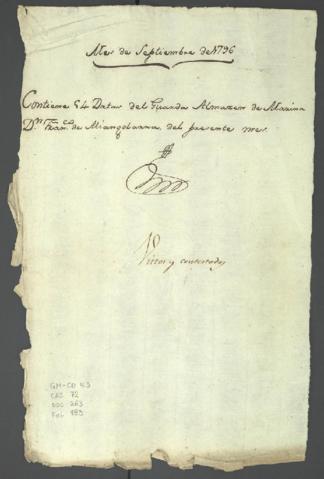 Mes de Septiembre de 1796
Contiene 54 Datas del Guarda Almazen de Marina
D.n Fran.co de Miangolarra, del presente mes.
Vistos y contextados
GM-CO 43
CAJ 72
DOC 263
Fol 193